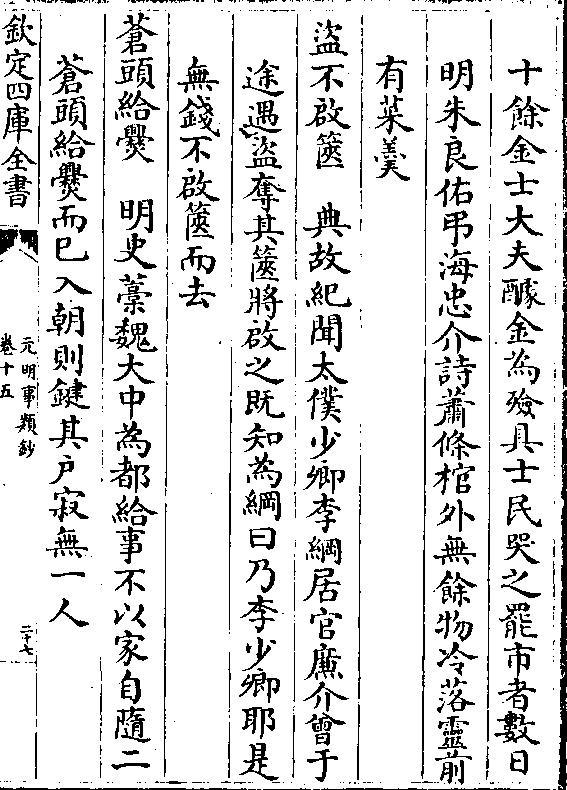 十餘金士大夫醵金為殮具士民哭之罷市者數日
明朱良佑弔海忠介詩蕭條棺外無餘物冷落靈前
有菜羹
盜不啟篋　典故紀聞太僕少卿李綱居官廉介曾于
途遇盜奪其篋將啟之既知為綱曰乃李少卿耶是
無錢不啟篋而去
蒼頭給爨　明史藁魏大中為都給事不以家自隨二
蒼頭給爨而已入朝則鍵其户寂無一人
欽定四庫全書
元明事類鈔
卷十五
二十七